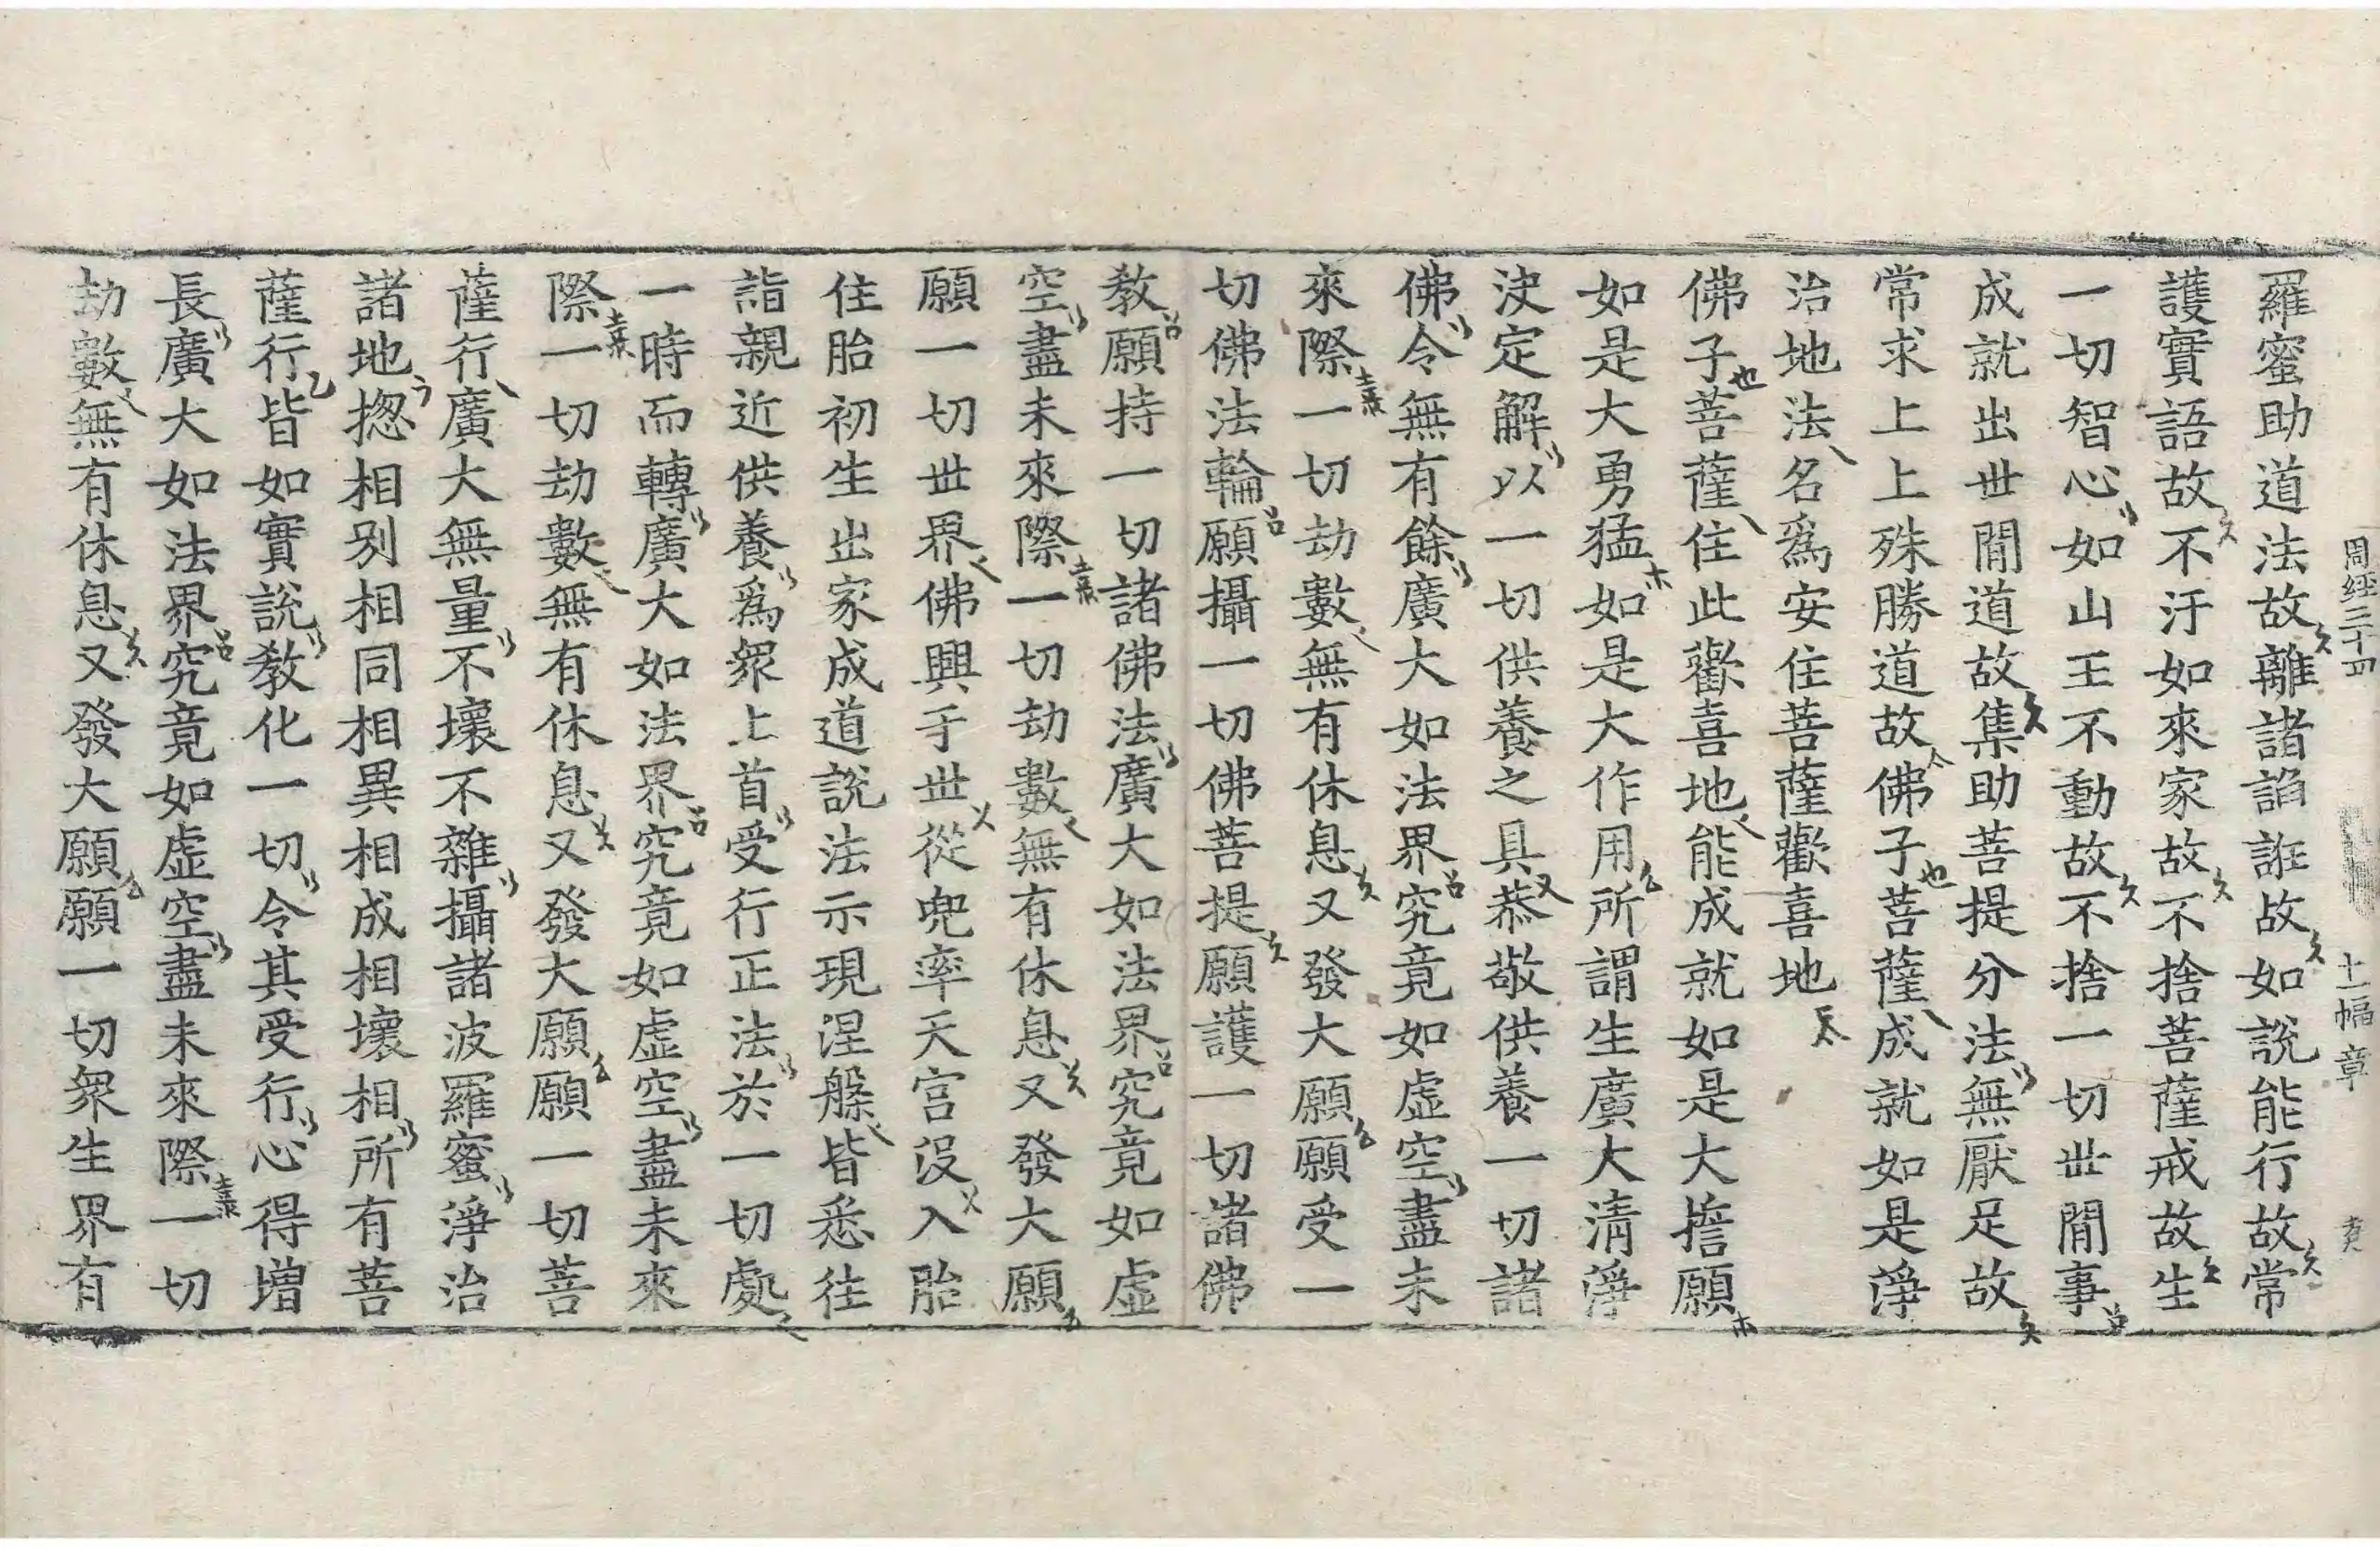 周經三十四 十一幅 章
羅蜜助道法故離諸諂誑故如說能行故常
護實語故不汙如來家故不捨菩薩戒故生
一切智心如山王不動故不捨一切世間事
成就出世間道故集助菩提分法無厭足故
常求上上殊勝道故佛子菩薩成就如是淨
治地法名爲安住菩薩歡喜地
佛子菩薩住此歡喜地能成就如是大誓願
如是大勇猛如是大作用所謂生廣大清淨
決定解以一切供養之具恭敬供養一切諸
佛令無有餘廣大如法界究竟如虛空盡未
來際一切劫數無有休息又發大願願受一
切佛法輪願攝一切佛菩提願護一切諸佛
教願持一切諸佛法廣大如法界究竟如虛
空盡未來際一切劫數無有休息又發大願
願一切世界佛興于世從兜率天宮沒入胎
住胎初生出家成道說法示現涅槃皆悉往
詣親近供養爲衆上首受行正法於一切處
一時而轉廣大如法界究竟如虛空盡未來
際一切劫數無有休息又發大願願一切菩
薩行廣大無量不壞不雜攝諸波羅蜜淨治
諸地揔相別相同相異相成相壞相所有菩
薩行皆如實說教化一切令其受行心得增
長廣大如法界究竟如虛空盡未來際一切
劫數無有休息又發大願願一切衆生界有